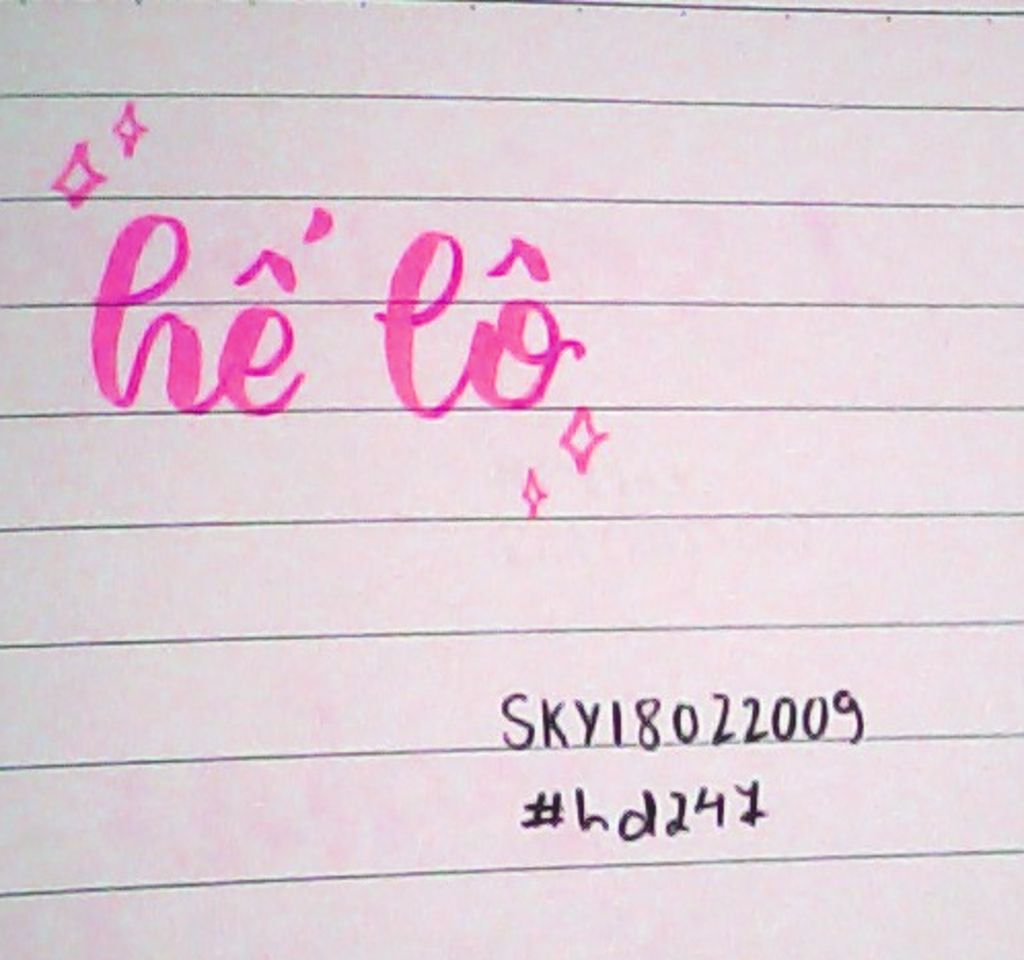 hế lô
SKY18022009
#hd247